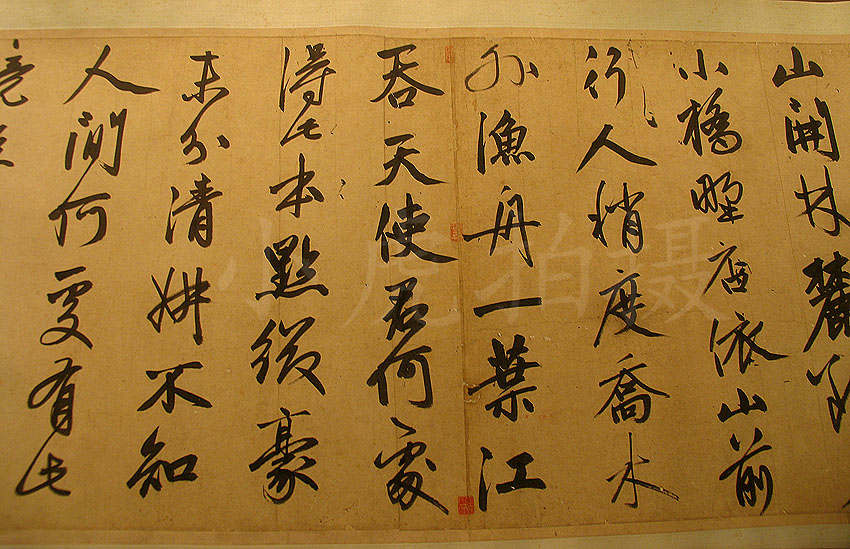 山開林麓斷
小橋野店依山前
行人稍度喬木
外漁舟一葉江
吞天使君何處
得此本點綴豪
末分清妍不知
人間何處有此
境
小虎拍摄